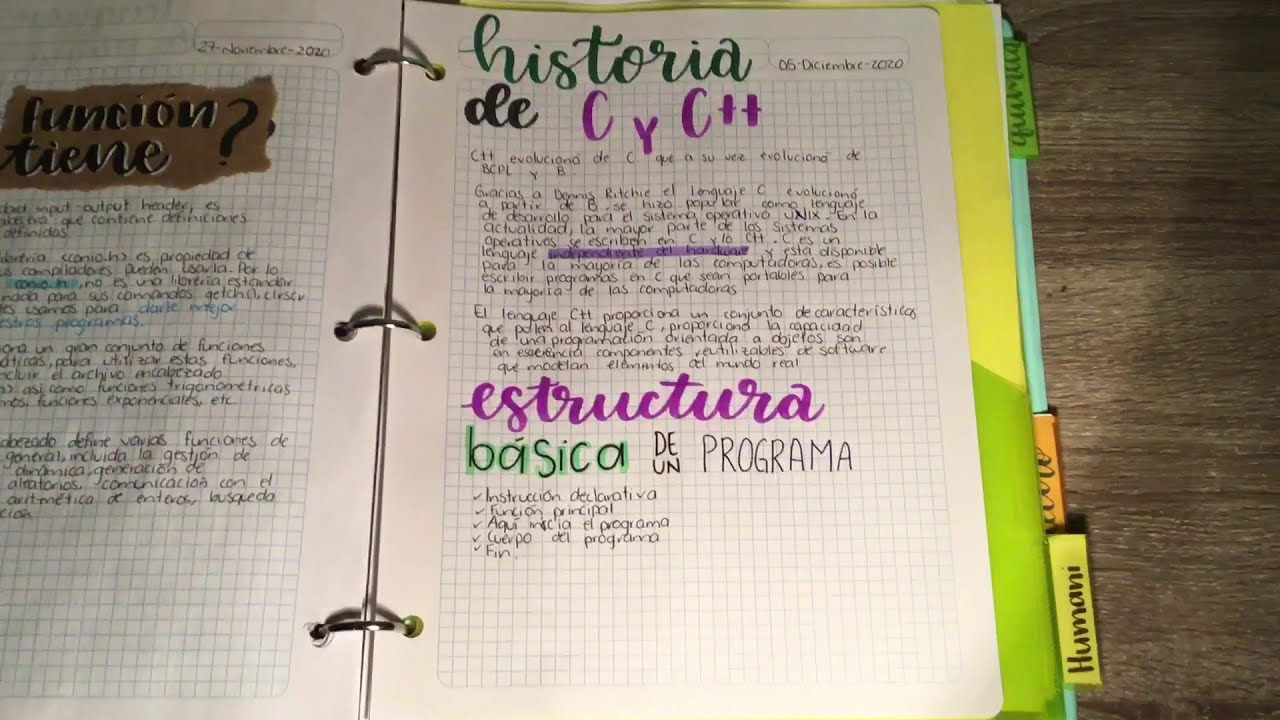 27-Noviembre-2020
función
tiene ?
input-output header, es
que contiene definiciones
definidas
librería <conio.h> es propiedad de
compiladores pueden usarla. Por lo
conio.h, no es una librería estándar
para sus comandos getch(), clrscr
usamos para darle mejor
programas.
un gran conjunto de funciones
para utilizar estas funciones,
el archivo encabezado
así como funciones trigonométricas
funciones exponenciales, etc.
define varias funciones de
general, incluida la gestión de
dinámica, generación de
comunicación con el
aritmética de enteros, busqueda
historia
05-Diciembre-2020
de C y C++
C++ evolucionó de C que a su vez evolucionó de
BCPL y B
Gracias a Dennis Ritchie el lenguaje C evolucionó
a partir de B. se hizo popular como lenguaje
de desarrollo para el sistema operativo UNIX. En la
actualidad, la mayor parte de los sistemas
operativos se escriben en C y/o C++. C es un
lenguaje independiente del hardware y esta disponible
para la mayoria de las computadoras, es posible
escribir programas en C que sean portables para
la mayoria de las computadoras
El lenguaje C++ proporciona un conjunto de características
que pulen al lenguaje C, proporciona la capacidad
de una programación orientada a objetos son
en esencia componentes reutilizables de software
que modelan elementos del mundo real
estructura
básica DE UN PROGRAMA
✓ Instrucción declarativa
✓ Función principal
✓ Aquí inicia el programa
✓ Cuerpo del programa
✓ Fin.
química
Humani